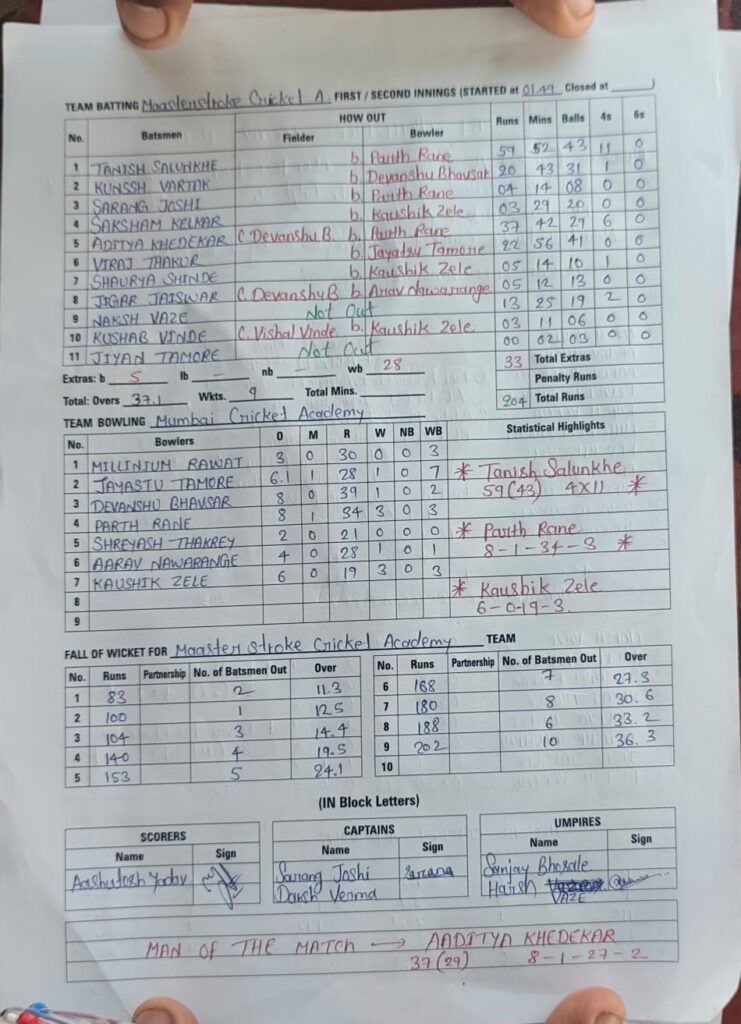 TEAM BATTING Maasterstroke Cricket A. FIRST / SECOND INNINGS (STARTED at 01:49 Closed at ____)
No. Batsmen HOW OUT Runs Mins Balls 4s 6s
Fielder Bowler
1 TANISH SALUNKHE b. Parth Rane 59 52 43 11 0
2 KUNSSH VARTAK b. Devanshu Bhavsar 20 43 31 1 0
3 SARANG JOSHI b. Parth Rane 04 14 08 0 0
4 SAKSHAM KELKAR b. Kaushik Zele 03 29 20 0 0
5 ADITYA KHEDEKAR C. Devanshu B. b. Parth Rane 37 42 29 6 0
6 VIRAJ THAKUR b. Jayatsu Tamore 22 56 41 0 0
7 SHAURYA SHINDE b. Kaushik Zele 05 14 10 1 0
8 JIGAR JAISWAR C. Devanshy B b. Arav Nawarange 05 12 13 0 0
9 NAKSH VAZE Not Out 13 25 19 2 0
10 KUSHAB VINDE C. Vishal Vinde b. Kaushik Zele 03 11 06 0 0
11 JIYAN TAMORE Not Out 00 02 03 0 0
Extras: b 5 lb - nb - wb 28 33 Total Extras
Penalty Runs
Total: Overs 37.1 Wkts. 9 Total Mins. 204 Total Runs
TEAM BOWLING Mumbai Cricket Academy Statistical Highlights
No. Bowlers O M R W NB WB
1 MILLINIUM RAWAT 3 0 30 0 0 3
2 JAYASTU TAMORE 6.1 1 28 1 0 7
3 DEVANSHU BHAVSAR 8 0 39 1 0 2
4 PARTH RANE 8 1 34 3 0 3
5 SHREYASH THAKREY 2 0 21 0 0 0
6 AARAV NAWARANGE 4 0 28 1 0 1
7 KAUSHIK ZELE 6 0 19 3 0 3
8
9
* Tanish Salunkhe
59 (43) 4X11 *
* Parth Rane
8-1-34-3 *
* Kaushik Zele
6-0-19-3
FALL OF WICKET FOR Maaster stroke Cricket Academy TEAM
No. Runs Partnership No. of Batsmen Out Over
1 83 2 11.3
2 100 1 12.5
3 104 3 14.4
4 140 4 19.5
5 153 5 24.1
No. Runs Partnership No. of Batsmen Out Over
6 168 7 27.3
7 180 8 30.6
8 188 6 33.2
9 202 10 36.3
10
(IN Block Letters)
SCORERS CAPTAINS UMPIRES
Name Sign Name Sign Name Sign
Aashutosh Yadav Sarang Joshi Sarang Sanjay Bhosale
Darsh Verma Harsh VAZE
MAN OF THE MATCH → AADITYA KHEDEKAR
37 (29) 8-1-27-2